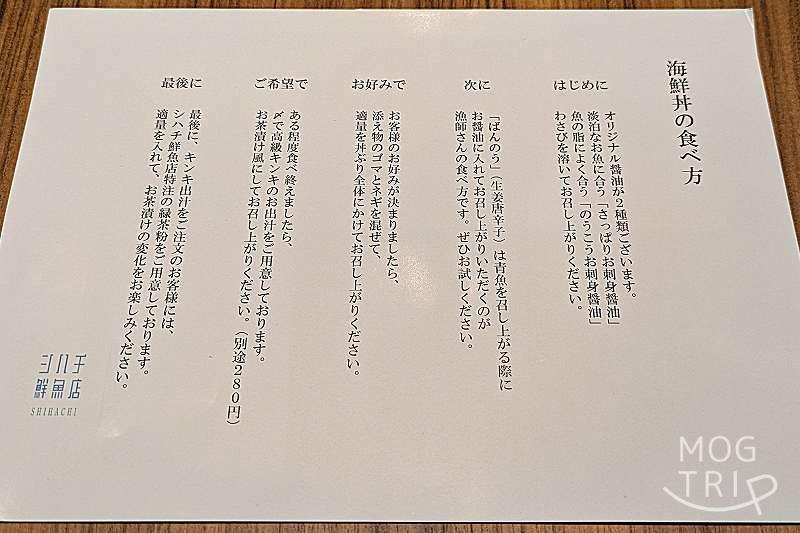 海鮮丼の食べ方
はじめに
オリジナル醤油が2種類ございます。
淡泊なお魚に合う「さっぱりお刺身醤油」
魚の脂によく合う「のうこうお刺身醤油」
わさびを溶いてお召し上がりください。
次に
「ばんのう」(生姜唐辛子)は青魚を召し上がる際に
お醤油に入れてお召し上がりいただくのが
漁師さんの食べ方です。ぜひお試しください。
お好みで
お客様のお好みが決まりましたら、
添え物のゴマとネギを混ぜて、
適量を丼ぶり全体にかけてお召し上がりください。
ご希望で
ある程度食べ終えましたら、
〆で高級キンキのお出汁をご用意しております。
お茶漬け風にしてお召し上がりください。(別途280円)
最後に
最後に、キンキ出汁をご注文のお客様には、
シハチ鮮魚店特注の緑茶粉をご用意しております。
適量を入れて、お茶漬けの変化をお楽しみください。
シハチ
鮮魚店
SHIHACHI
MOG
TRIP